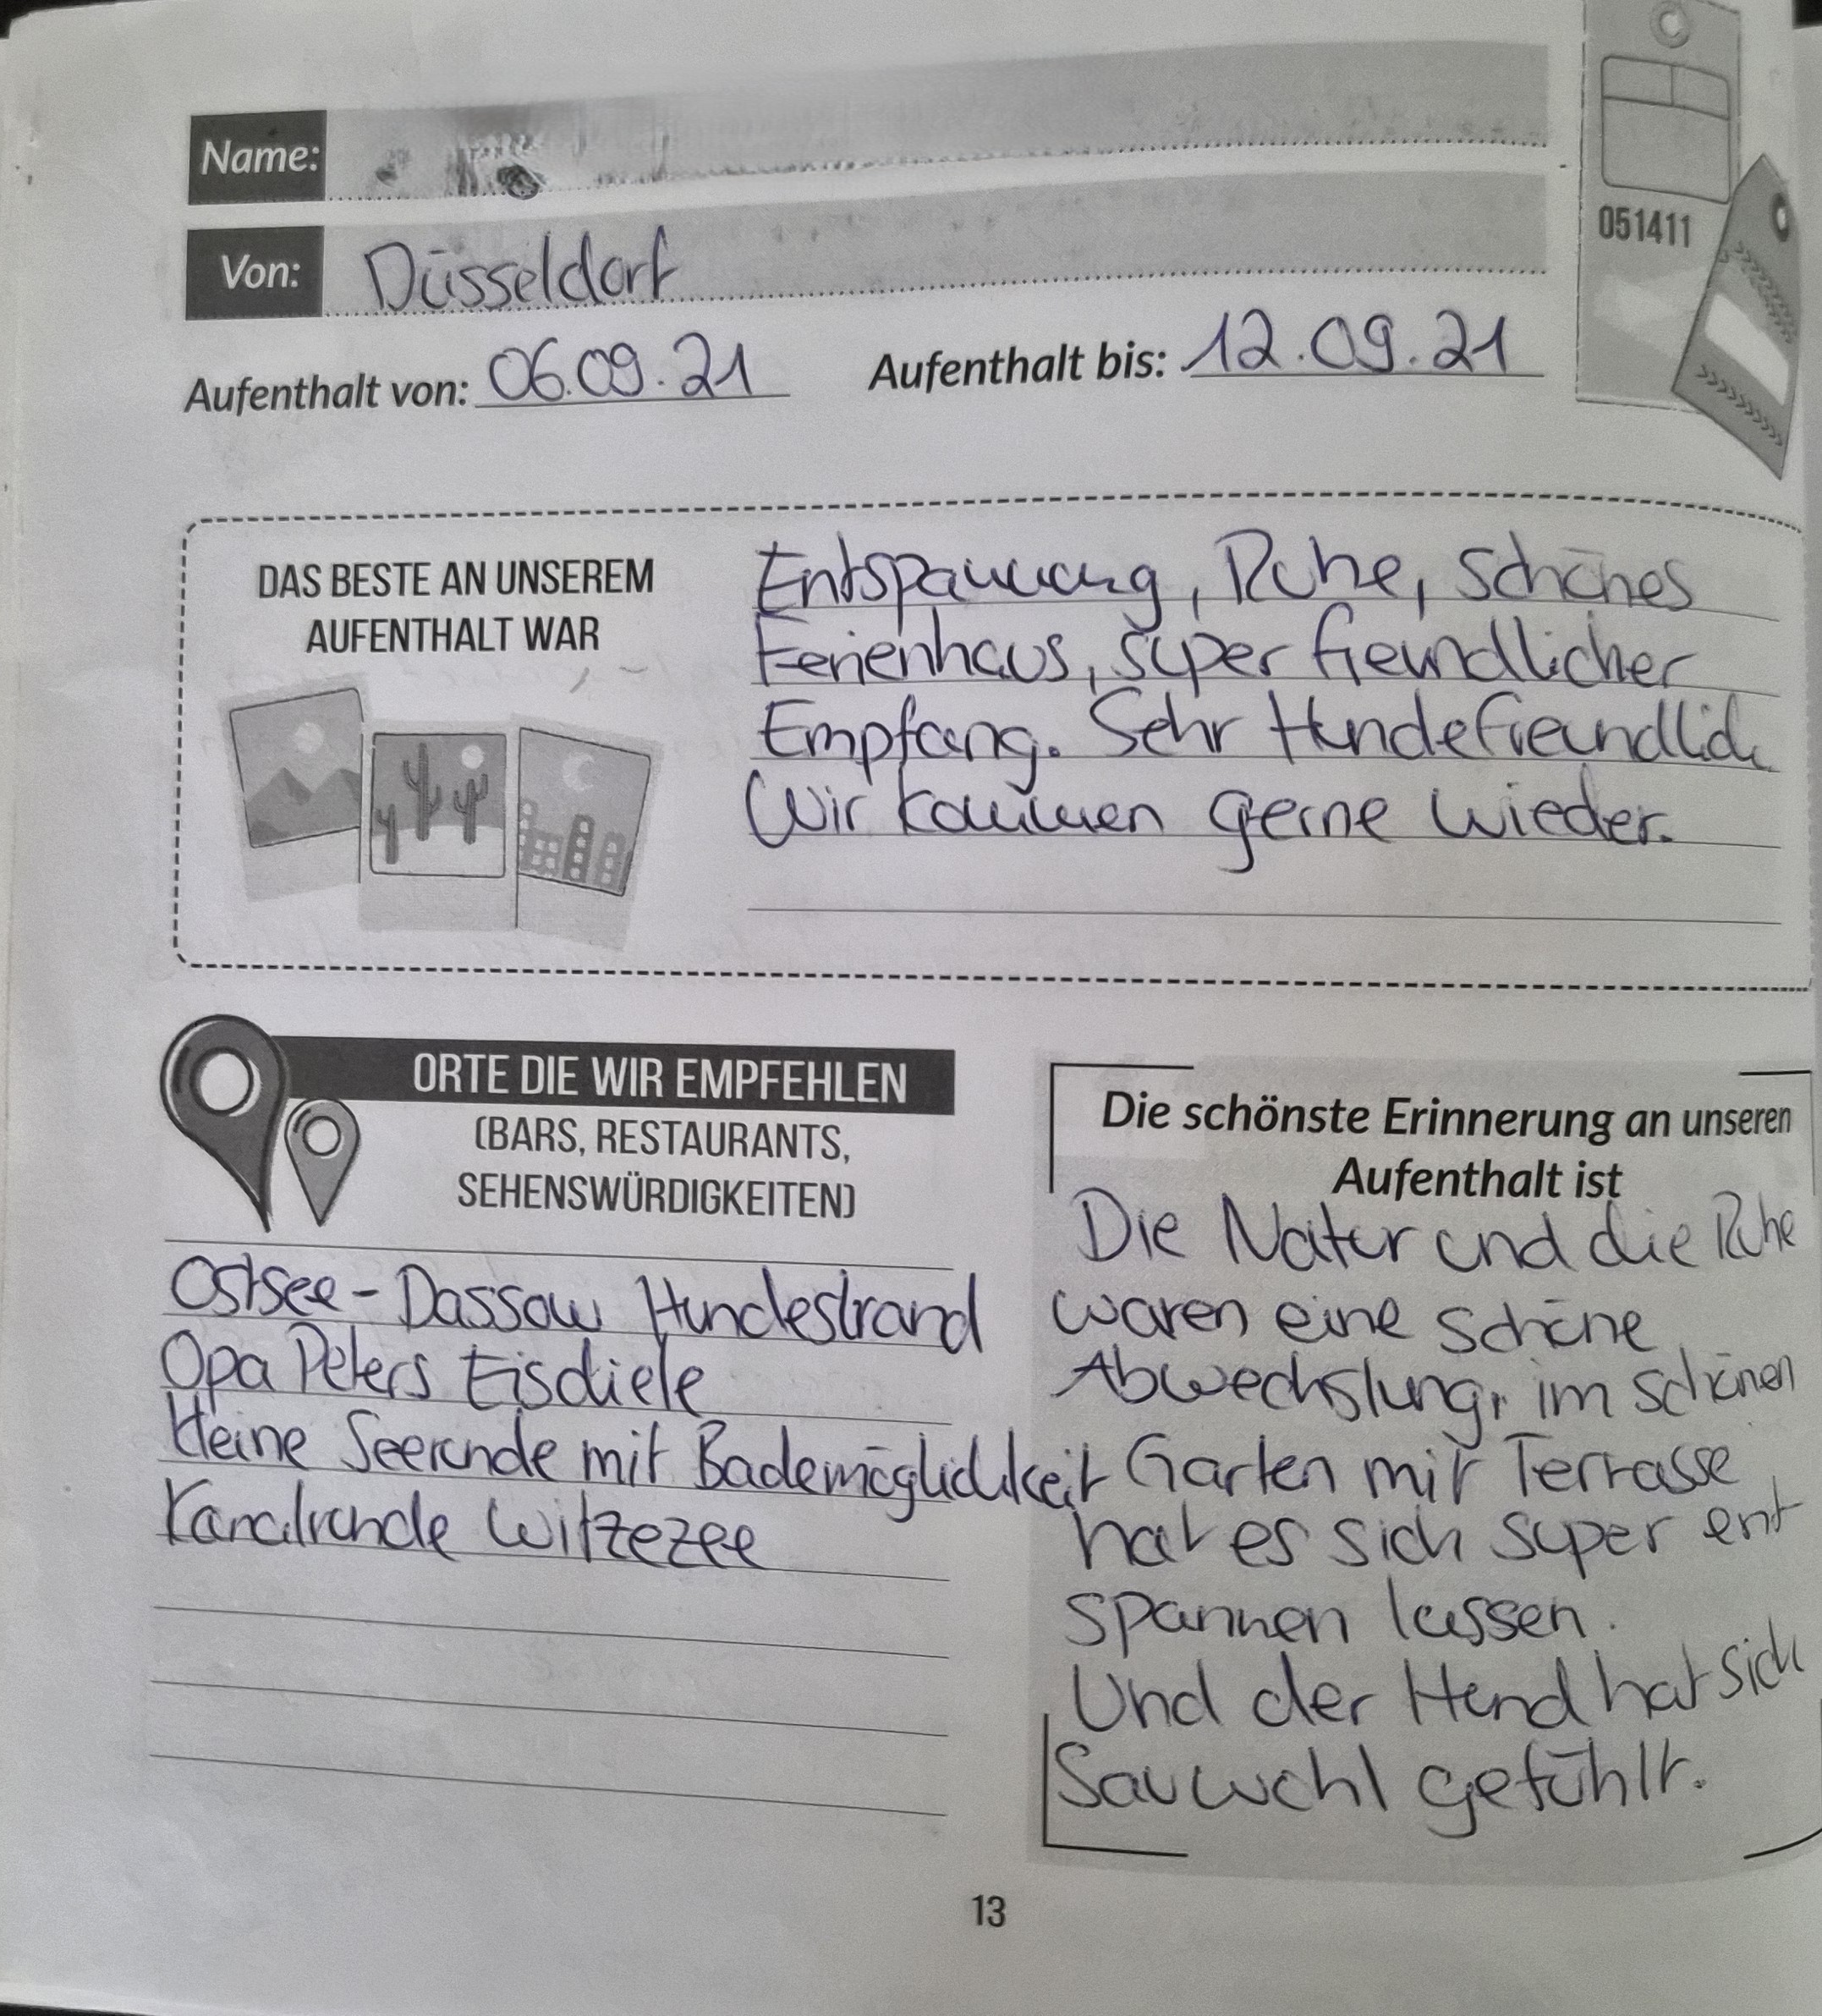 Name:
Von: Düsseldorf
051411
Aufenthalt von: 06.09.21 Aufenthalt bis: 12.09.21
DAS BESTE AN UNSEREM
AUFENTHALT WAR
Entspannung, Ruhe, schönes
Ferienhaus, super freundlicher
Empfang. Sehr Hundefreundlich
Wir kommen gerne wieder.
ORTE DIE WIR EMPFEHLEN
(BARS, RESTAURANTS,
SEHENSWÜRDIGKEITEN)
Ostsee - Dassow Hundestrand
Opa Peters Eisdiele
kleine Seerunde mit Bademöglichkeit
Kanalrunde Witzezee
Die schönste Erinnerung an unseren
Aufenthalt ist
Die Natur und die Ruhe
waren eine schöne
Abwechslung, im schönen
Garten mit Terrasse
hat es sich super ent
spannen lassen.
Und der Hund hat sich
Sauwohl gefühlt.
13